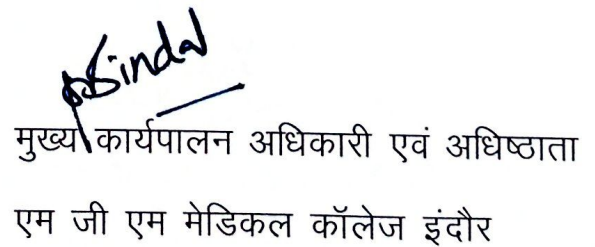 मुख्य कार्यपालन अधिकारी एवं अधिष्ठाता
एम जी एम मेडिकल कॉलेज इंदौर